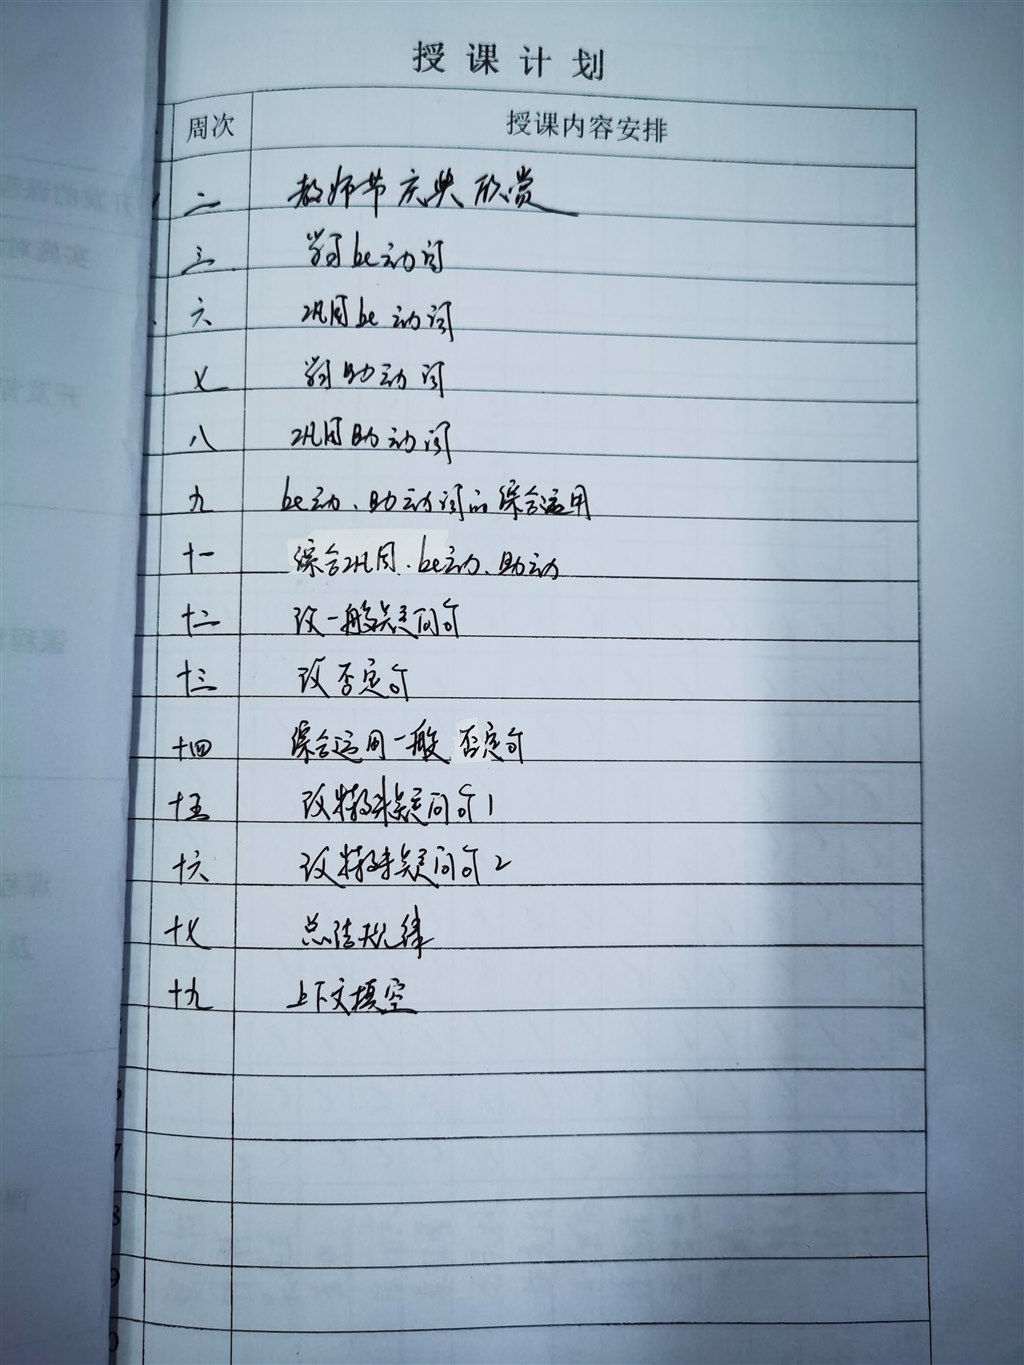 授课计划
周次 授课内容安排
二 教师节庆典欣赏
三 学习be动词
六 巩固be动词
七 学习助动词
八 巩固助动词
九 be动、助动词的综合运用
十一 综合巩固.be动、助动
十二 改一般疑问句
十三 改否定句
十四 综合运用一般 否定句
十五 改特殊疑问句1
十六 改特殊疑问句2
十七 总结规律
十九 上下文填空